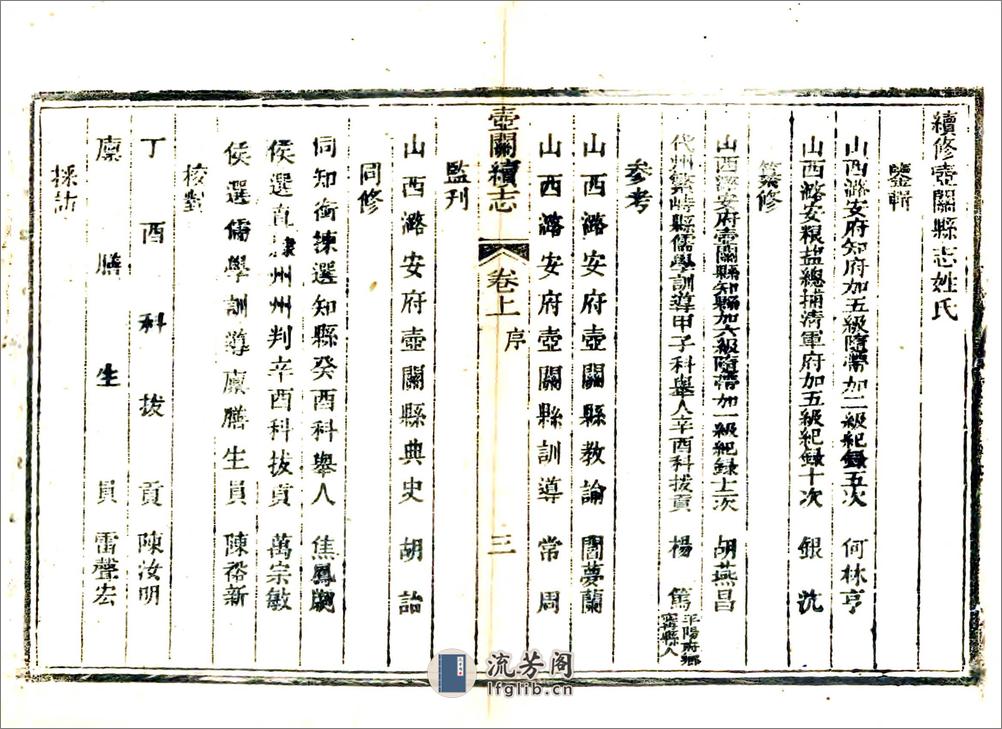 續修壺關縣志姓氏
鑒輯
山西潞安府知府加五級隨帶加二級紀錄五次 何林亨
山西潞安粮益總捕清軍府加五級紀錄十次 銀沆
纂修
山西潞安府壺關縣知縣加六級隨帶加一級紀錄上次 胡燕昌
代州繁峙縣儒學訓導甲子科舉人辛酉科拔貢 楊篤 平陽府鄉寧縣人
参考
山西潞安府壺關縣教諭 閻夢蘭
山西潞安府壺關縣訓導 常周
壺關續志 卷上 序 三
監刊
山西潞安府壺關縣典史 胡詒
同修
同知銜揀選知縣癸酉科舉人 焦鳳
候選直隷州州判辛酉科拔貢 萬宗敏
侯選儒學訓導廪膳生員 陳裕新
校對
丁酉科拔貢 陳汝明
廪膳生員 雷聲宏
採訪
流芳阁
lfglib.cn